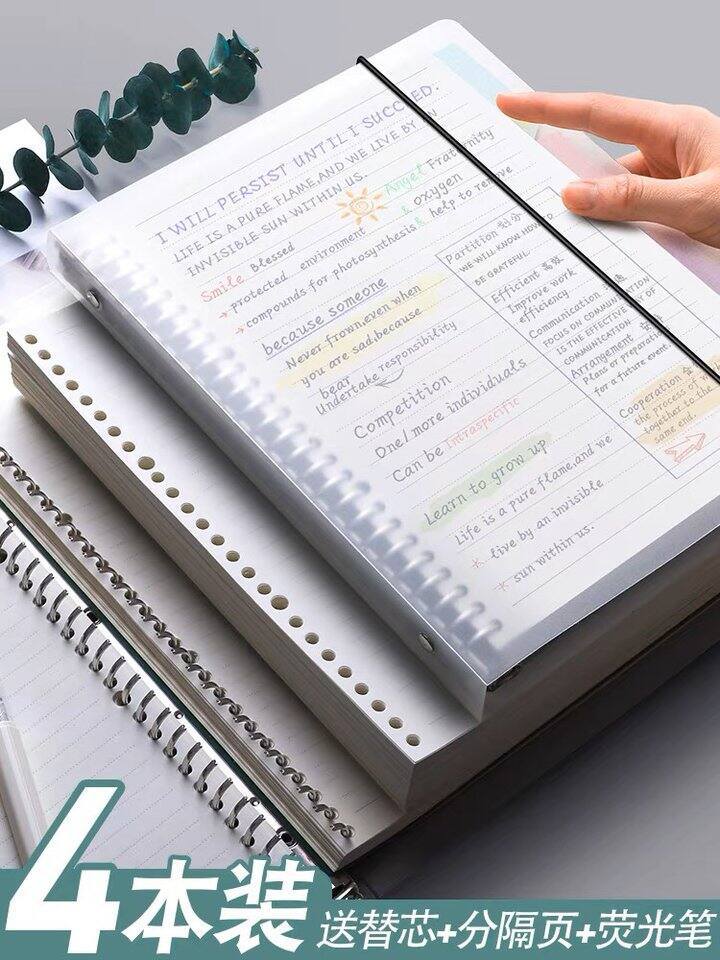 I WILL PERSIST UNTIL I SUCCED.
LIFE IS A PURE FLAME,AND WE LIVE BY AN
INVISIBLE SUN WITHIN US.
Smile Blessed
Angel Fraternity
protected environment & oxygen
compounds for photosynthesis & help to remove
because someone
Never frown,even when
you are sad,because
bear
Undertake responsibility
Competition
One/more individuals
Can be Intraspecific
Learn to grow up
Life is a pure flame,and we
live by an invisible
sun within us.
Partition 划分
WE WILL KNOW HOW TO
BE GRATEFUL
Efficient 高效
Improve work
efficiency
Communication
FOCUS ON COMMUNICATION
IS THE EFFECTIVE WAY OF
COMMUNICATION
Arrangement
Plans or preparation
for a future event
Cooperation
the process of
together to the
same end.
4本装
送替芯+分隔页+荧光笔